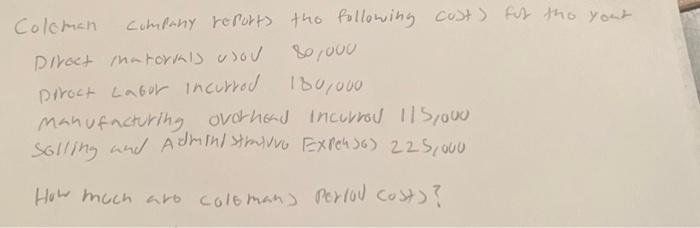 Coleman company reports the following costs for the year
Direct materials used 80,000
Direct Labor Incurred 180,000
manufacturing overhead incurred 115,000
Selling and Administrative Expenses 225,000
How much are colemans Period costs?